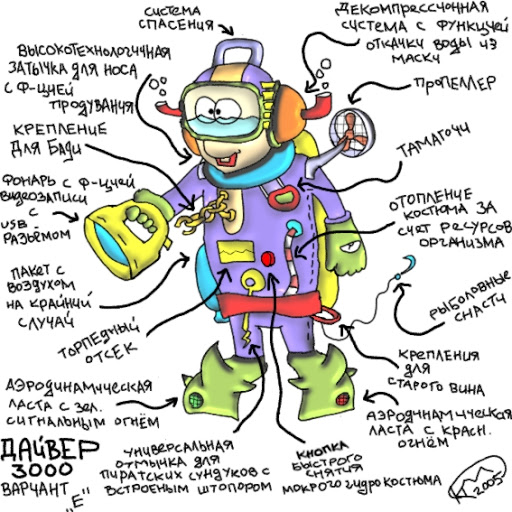 система
спасения
декомпрессионная
система с функцией
откачки воды из
маски
высокотехнологичная
затычка для носа
с ф-цией
продувания
пропеллер
крепление
для Бади
таматочи
фонарь с ф-цией
видеозаписи
с
USB
разъёмом
отопление
костюма за
счёт ресурсов
организма
пакет с
воздухом
на крайний
случай
рыболовные
снасти
торпедный
отсек
крепления
для
старого вина
аэродинамическая
ласта с зел.
сигнальным огнём
аэродинамическая
ласта с красн.
огнём
ДАЙВЕР
3000
вариант
"Е"
универсальная
отмычка для
пиратских сундуков с
встроеным штопором
кнопка
быстрого
снятия
мокрого гидрокостюма
2005